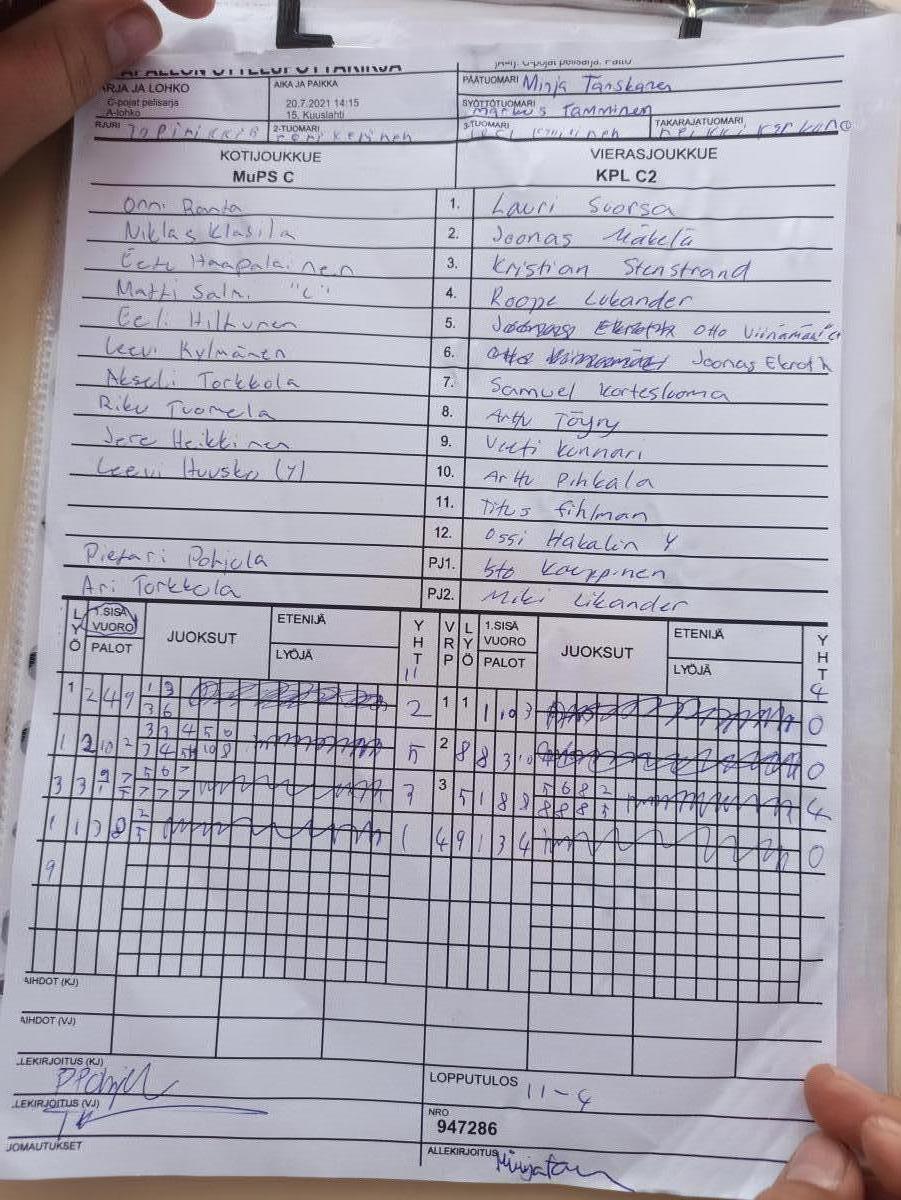 ARJA JA LOHKO
C-pojat pelisarja
A-lohko
AIKA JA PAIKKA
20.7.2021 14:15
15, Kuuslahti
PÄÄTUOMARI Minja Tanskanen
SYÖTTÖTUOMARI Markus Tamminen
RJURI
2-TUOMARI
3-TUOMARI
TAKARAJATUOMARI
KOTIJOUKKUE VIERASJOUKKUE
MuPS C KPL C2
Onni Ranta 1. Lauri Suorsa
Niklas Klasila 2. Joonas Mäkelä
Eetu Haapalainen 3. Kristian Stenstrand
Matti Salmi "C" 4. Roope Likander
Eeli Hilkunen 5. Otto
Leevi Kylmänen 6. Joonas Ekroth
Akseli Torkkola 7. Samuel Kortesluoma
Riku Tuomela 8. Arttu Töyry
Jere Heikkinen 9. Veeti Kunnari
Leevi Huusko (Y) 10. Arttu Pihkala
11. Titus Fihlman
12. Ossi Hakalin Y
Pietari Pohjola PJ1. Kauppinen
Ari Torkkola PJ2. Miki Likander
LYÖ 1.SISÄ VUORO PALOT JUOKSUT ETENIJÄ LYÖJÄ YHT 11 VRP LYÖ 1.SISÄ VUORO PALOT JUOKSUT ETENIJÄ LYÖJÄ YHT 4
1 2 4 9 1 3 2 1 1 1 10 3 0
3 6
1 2 10 2 3 3 4 5 6 5 2 8 8 3 10 0
3 4 5 10 8
3 3 9 7 5 6 7 3 3 5 1 8 8 5 6 8 2 4
7 7 7 8 8 8 5
1 1 3 8 2 1 4 9 1 3 4 0
5
9
AIHDOT (KJ)
AIHDOT (VJ)
LEKIRJOITUS (KJ)
LOPPUTULOS 11-4
LEKIRJOITUS (VJ)
NRO
947286
JOMAUTUKSET
ALLEKIRJOITUS